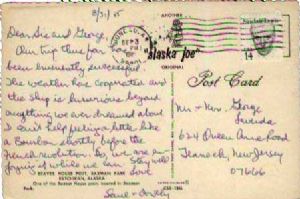 8/31/85
Dear Sis and George,
Our trip thus far has
been eminently successful.
The weather has cooperated and
the ship is luxurious beyond
anything we ever dreamed about
I can't help feeling a little like
a Bourbon shortly before the
French revolution. So, we are
while we can. Stay well
Love
Sami + Dotty
BEAVER HOUSE POST, SAXMAN PARK
KETCHIKAN, ALASKA
One of the Beaver House posts located in Saxman
Park.
ANOTHER
"alaska joe"
ORIGINAL
SEP 3
PM
14
Post Card
Mr + Mrs. George
624 Queen Anne Road
Teaneck, New Jersey
07666